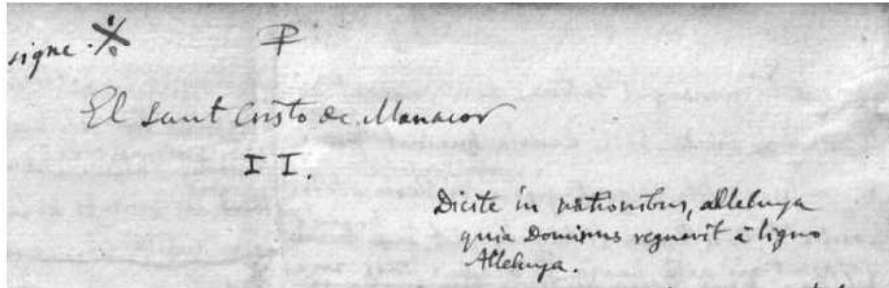 signe
El Sant Cristo de Manacor
II.
Dicite in nationibus, alleluya
quia Dominus regnavit à ligno
Alleluya.